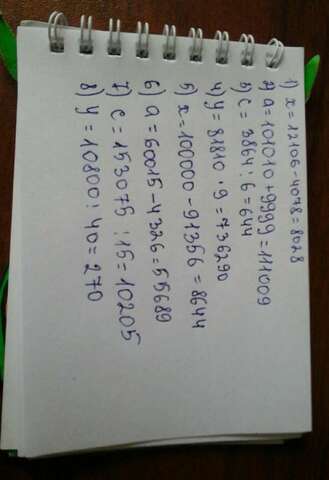 1) x = 12106-4078=8028
2) a=101010+9999=111009
3) c = 3864:6=644
4) y = 81810 · 9 = 736290
5) x=100000-91356=8644
6) a = 60015-4326=55689
7) c = 153075 :15=10205
8) y = 10800:40=270